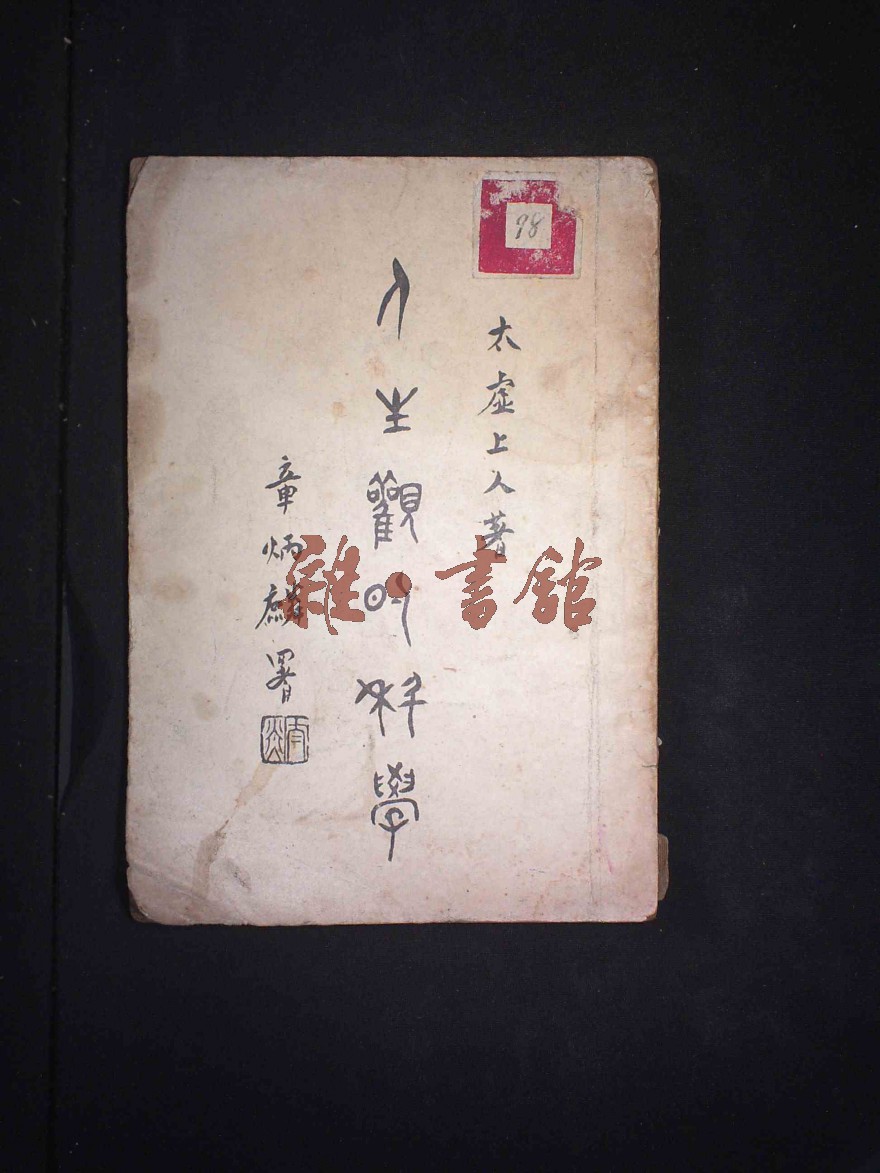 98
太虛上人著
人生觀的科學
章炳麟署
雜·書館